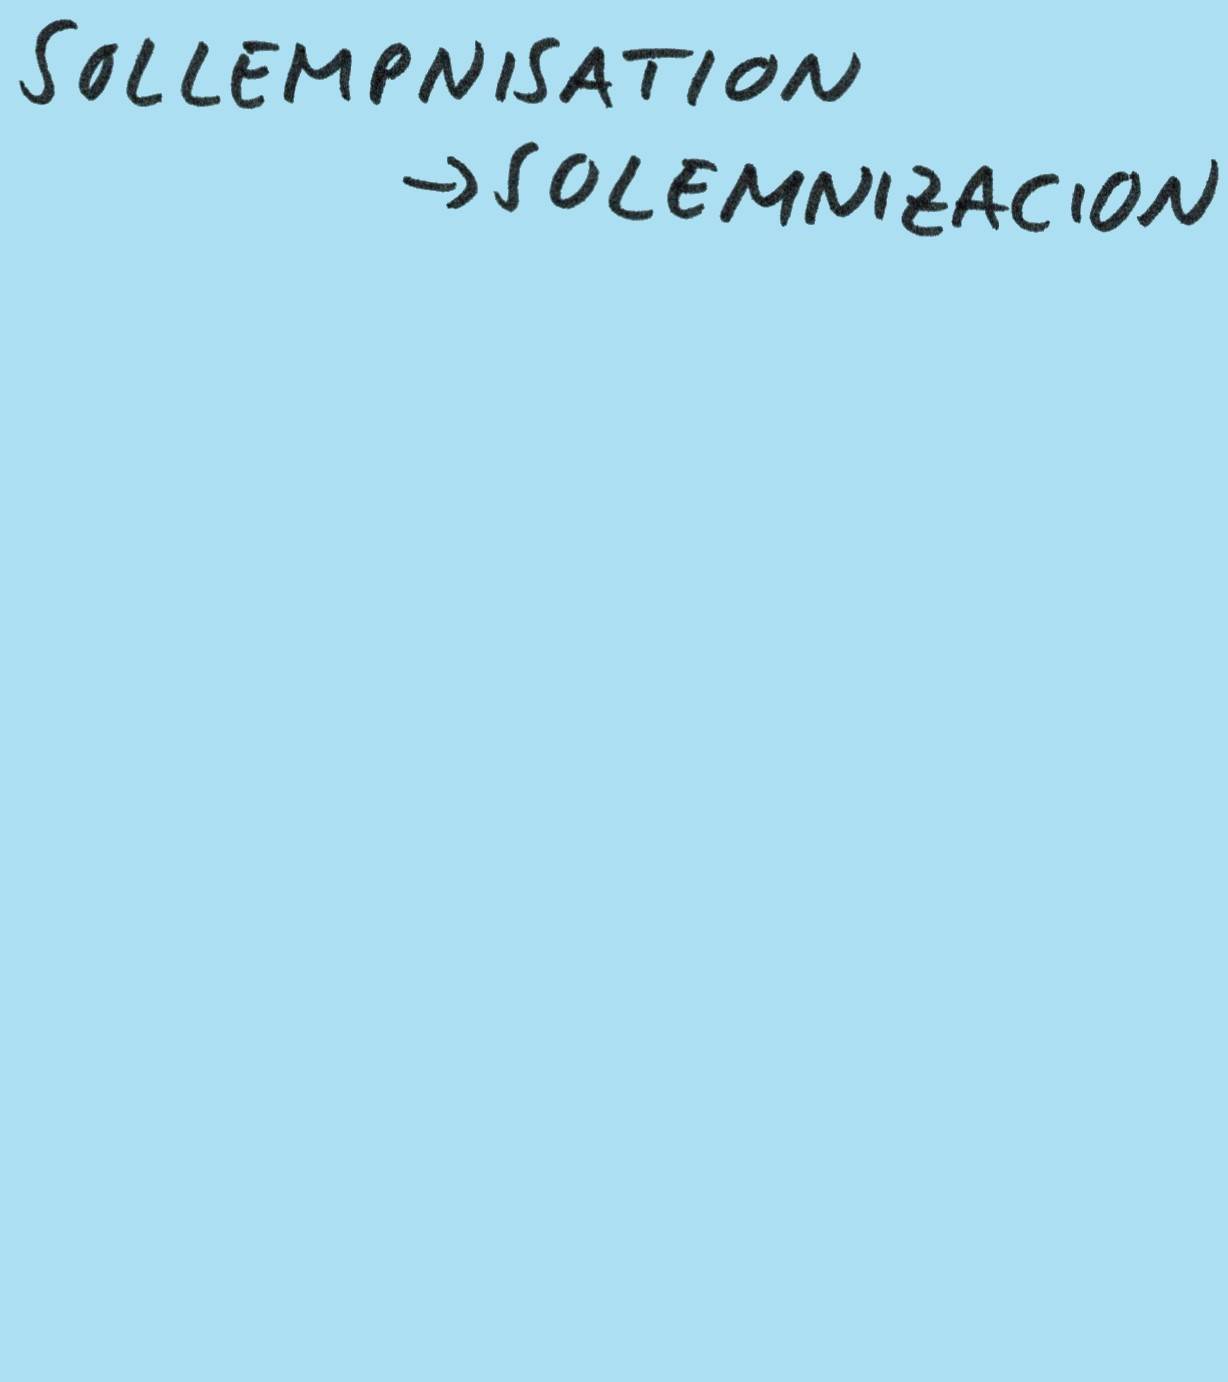 SOLLEMPNISATION
→SOLEMNIZACION